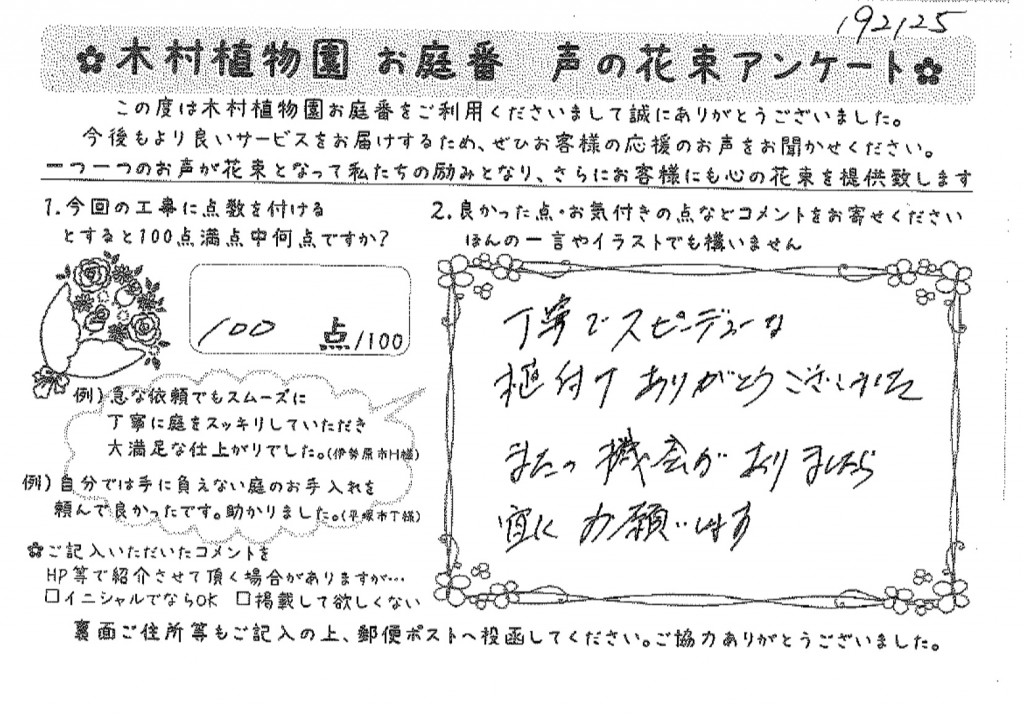 192125
✿木村植物園 お庭番 声の花束アンケート✿
この度は木村植物園お庭番をご利用くださいまして誠にありがとうございました。
今後もより良いサービスをお届けするため、ぜひお客様の応援のお声をお聞かせください。
一つ一つのお声が花束となって私たちの励みとなり、さらにお客様にも心の花束を提供致します
1.今回の工事に点数を付ける
とすると100点満点中何点ですか?
100 点/100
例)急な依頼でもスムーズに
丁寧に庭をスッキリしていただき
大満足な仕上がりでした。(伊勢原市H様)
例)自分では手に負えない庭のお手入れを
頼んで良かったです。助かりました。(平塚市T様)
✿ご記入いただいたコメントを
HP等で紹介させて頂く場合がありますが…
□イニシャルでならOK □掲載して欲しくない
2.良かった点・お気付きの点などコメントをお寄せください
ほんの一言やイラストでも構いません
丁寧でスピーデューな
植付け ありがとうございました
また 機会が ありましたら
宜しく お願いします
裏面ご住所等もご記入の上、郵便ポストへ投函してください。ご協力ありがとうございました。